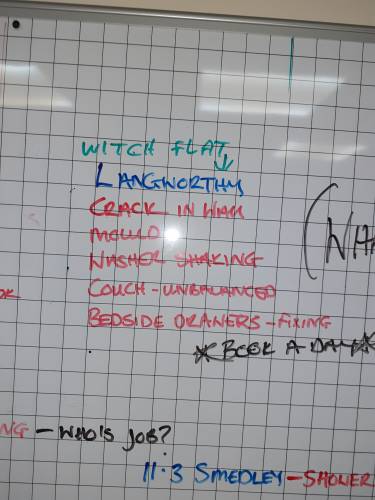 WITCH FLAT
LANGWORTHY
CRACK IN WALL
MOULD
WASHER SHAKING
COUCH - UNBALANCED
BEDSIDE DRAWERS - FIXING
BOOK A DAY
- WHO'S JOB?
11.3 SMEDLEY - SHOWER